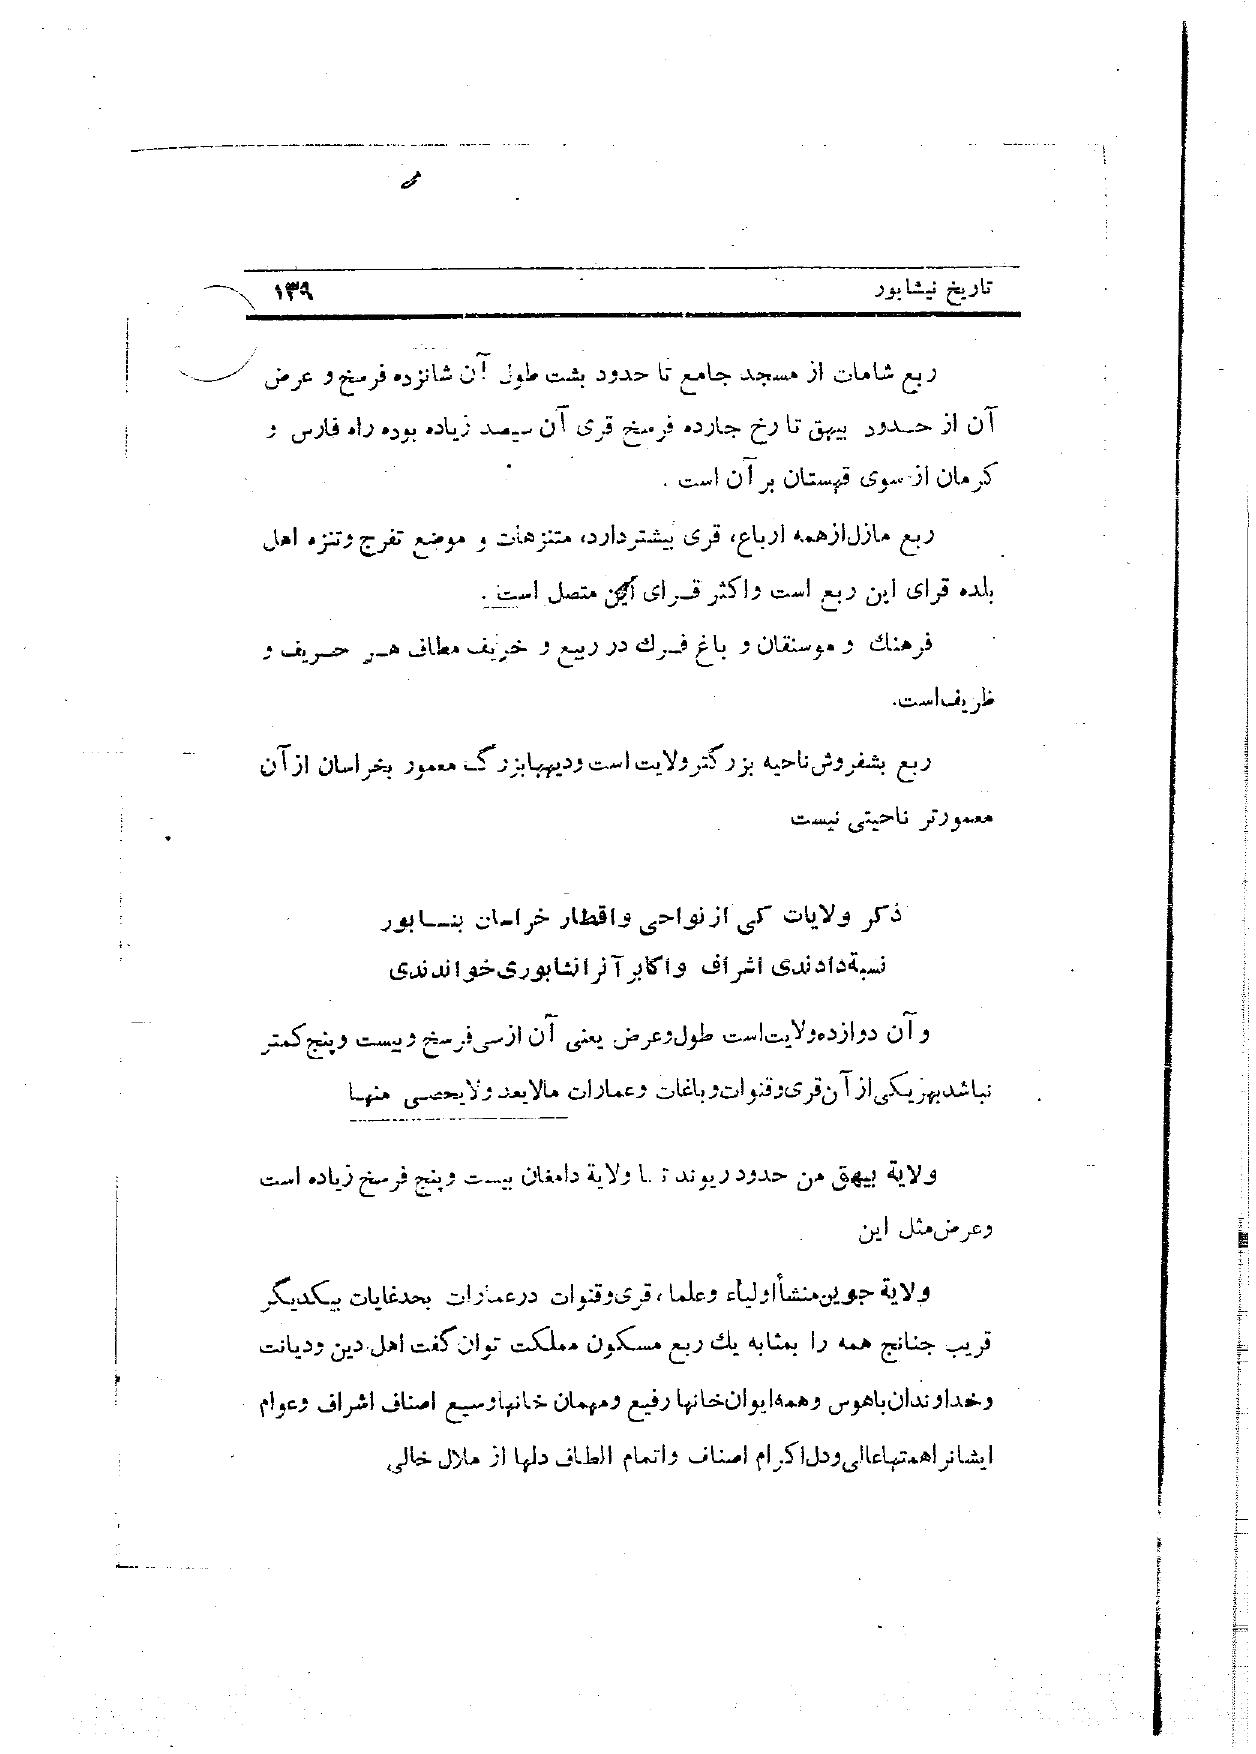 تاریخ نیشابور ۱۳۹
ربع شامات از مسجد جامع تا حدود بشت طول آن شانزده فرسخ و عرض
آن از حدود بیهق تا رخ جارده فرسخ قری آن سیصد زیاده بوده راه فارس و
کرمان از سوی قهستان بر آن است .
ربع مازل از همه ارباع، قری بیشتر دارد، متنزهات و موضع تفرج و تنزه اهل
بلده قرای این ربع است و اکثر قرای متصل است .
فرهنك و موسنقان و باغ فرك در ربیع و خریف مطاف هر حریف و
ظریف است.
ربع بشفروش ناحیه بزرگتر ولایت است و دیهها بزرگ معمور بخراسان از آن
معمورتر ناحیتی نیست
ذکر ولایات کی از نواحی و اقطار خراسان بنسابور
نسبة دادندی اشراف و اکابر آنرا نشابوری خواندندی
و آن دوازده ولایت است طول و عرض یعنی آن از سی فرسخ و بیست و پنج کمتر
نباشد بهر یکی از آن قری و قنوات و باغات و عمارات مالایعد ولایحصی منها
ولایة بیهق من حدود ریوند تا ولایة دامغان بیست و پنج فرسخ زیاده است
و عرض مثل این
ولایة جوین منشأ اولیاء و علما، قری و قنوات در عمارات بحد غایات بیکدیگر
قریب جنانج همه را بمثابه یك ربع مسکون مملکت توان گفت اهل دین و دیانت
و خداوندان با هوس و همه ایوان خانها رفیع و مهمان خانها وسیع اصناف اشراف و عوام
ایشانرا همتها عالی و دل اکرام اصناف و اتمام الطاف دلها از ملال خالی